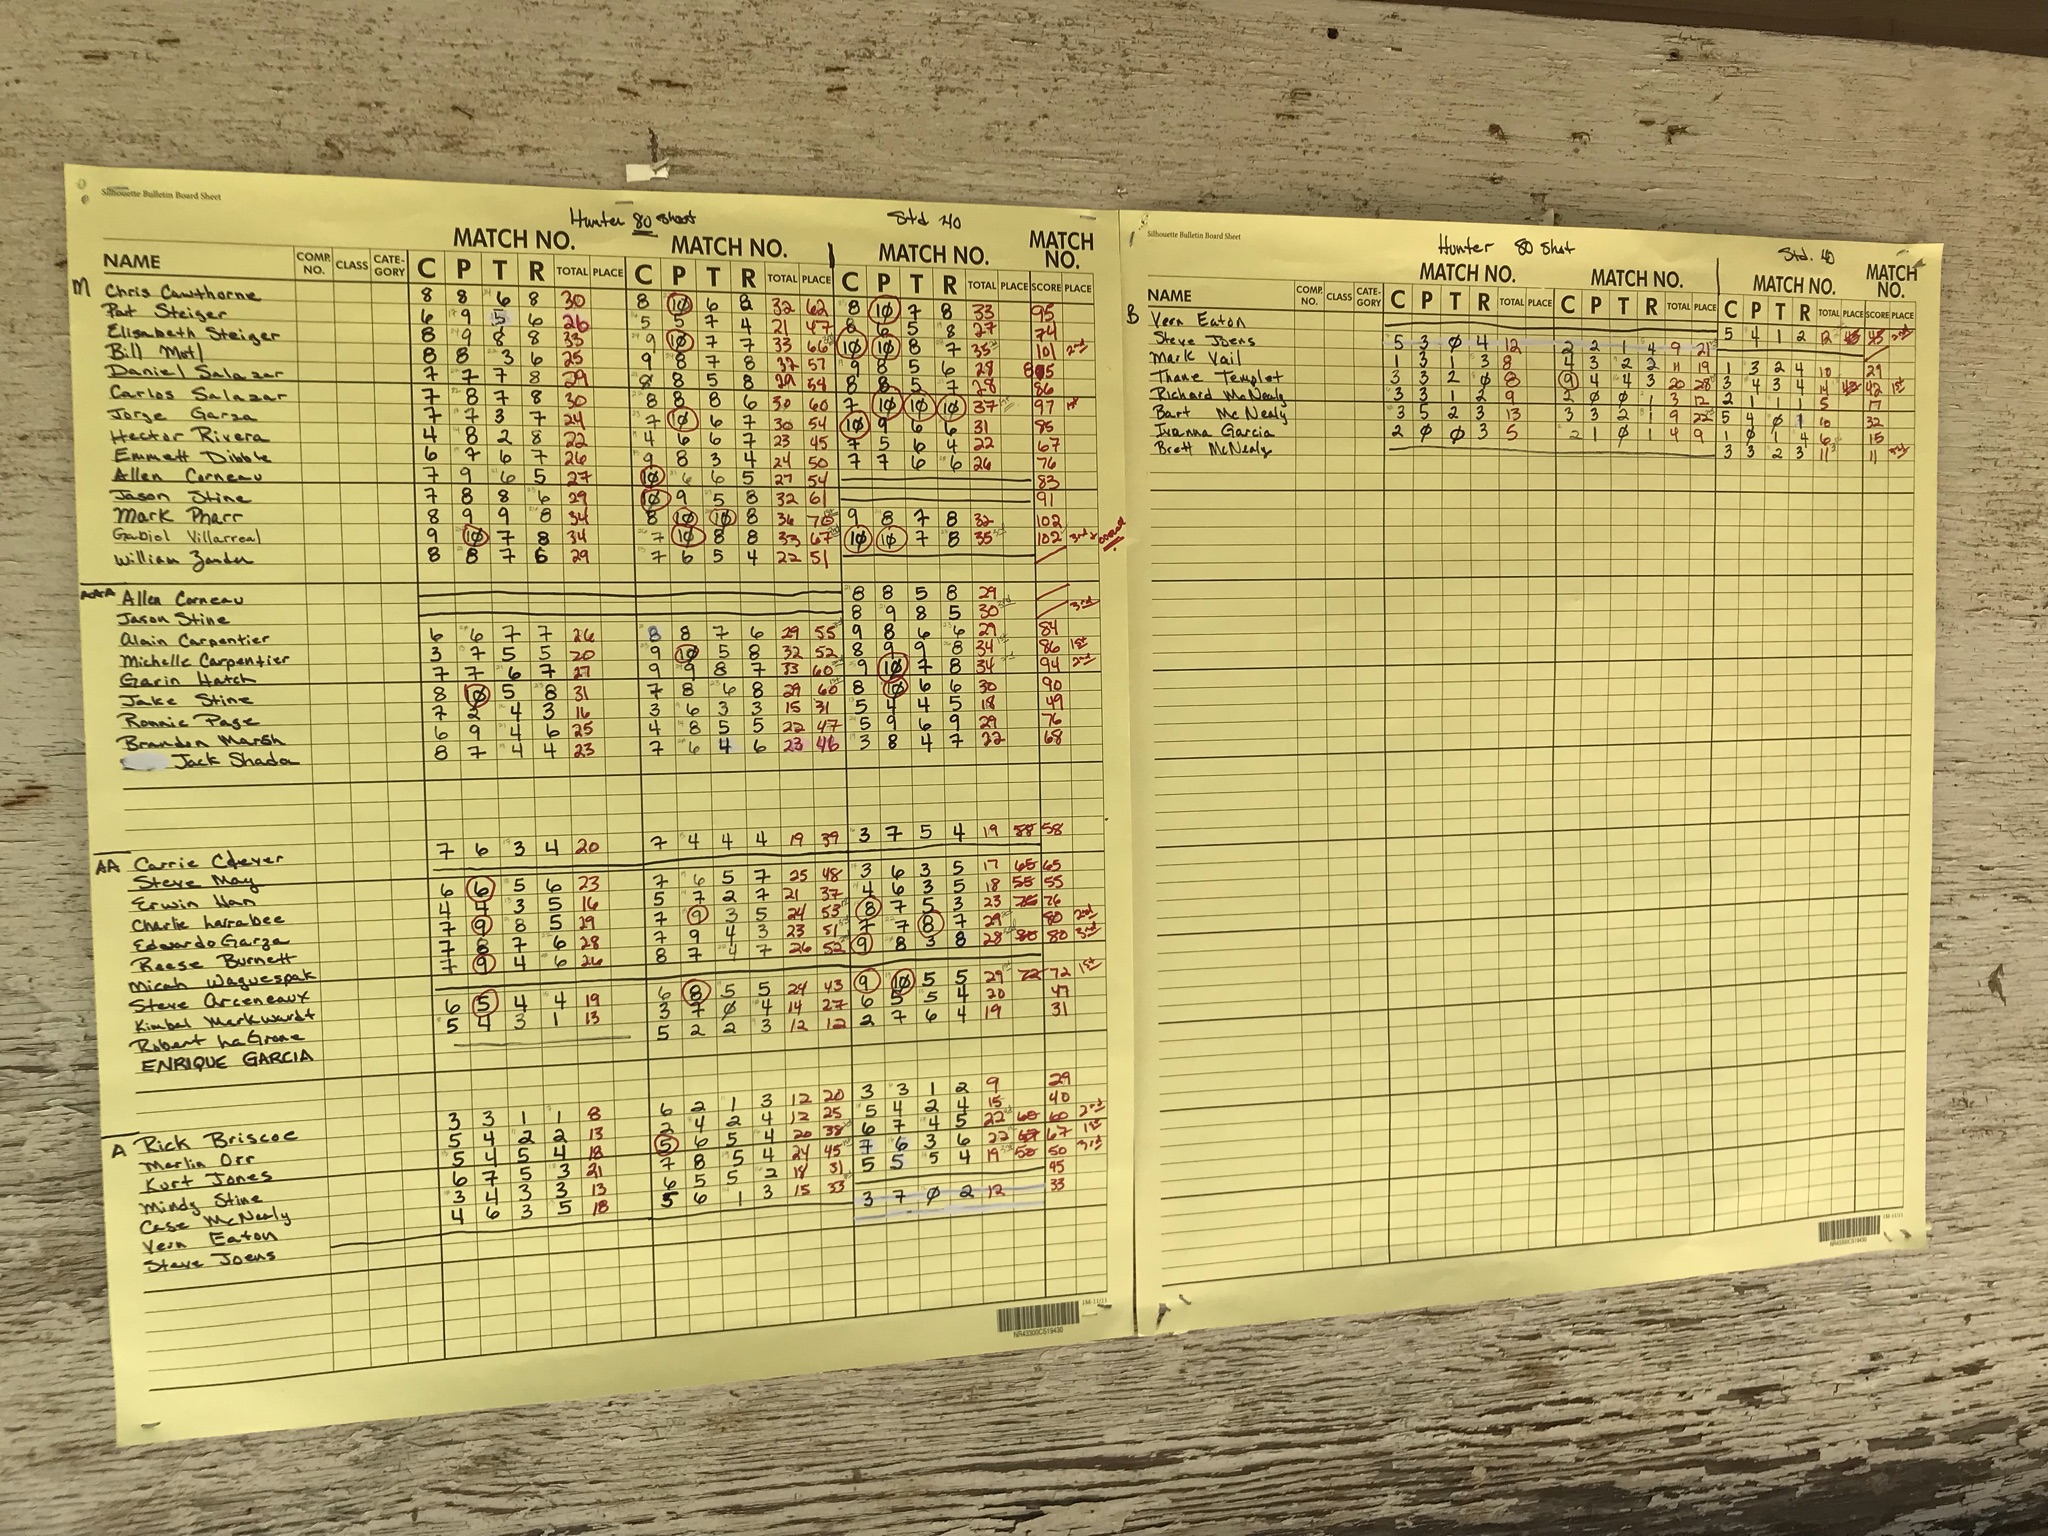 Silhouette Bulletin Board Sheet
Hunter 80 Shot Std 40
MATCH NO. MATCH NO. MATCH NO. MATCH NO.
NAME COMP. NO. CLASS CATE-GORY C P T R TOTAL PLACE C P T R TOTAL PLACE C P T R TOTAL PLACE SCORE PLACE
M Chris Cawthorne 8 8 6 8 30 8 10 6 8 32 62 8 10 7 8 33 95
Pat Steiger 6 9 5 6 26 5 5 7 4 21 47 8 6 5 8 27 74
Elisabeth Steiger 8 9 8 8 33 9 10 7 7 33 66 10 10 8 7 35 101 2nd
Bill Motl 8 8 3 6 25 9 8 7 8 32 57 9 8 5 6 28 85
Daniel Salazar 7 7 7 8 29 8 8 5 8 29 58 8 8 5 7 28 86
Carlos Salazar 7 8 7 8 30 8 8 8 6 30 60 7 10 10 10 37 97 1st
Jorge Garza 7 7 3 7 24 7 10 6 7 30 54 10 9 6 6 31 85
Hector Rivera 4 8 2 8 22 4 6 6 7 23 45 7 5 6 4 22 67
Emmett Dibble 6 7 6 7 26 9 8 3 4 24 50 7 7 6 6 26 76
Allen Corneau 7 9 6 5 27 10 6 6 5 27 54 83
Jason Stine 7 8 8 6 29 10 9 5 8 32 61 91
Mark Pharr 8 9 9 8 34 8 10 10 8 36 70 9 8 7 8 32 102
Gabiol Villarreal 9 10 7 8 34 7 10 8 8 33 67 10 10 7 8 35 102 3rd overall
William Zander 8 8 7 6 29 7 6 5 4 22 51
AAA Allen Corneau 8 8 5 8 29
Jason Stine 8 9 8 5 30 3rd
Alain Carpentier 6 6 7 7 26 8 8 7 6 29 55 9 8 6 6 29 84
Michelle Carpentier 3 7 5 5 20 9 10 5 8 32 52 8 9 9 8 34 86 1st
Garin Hatch 7 7 6 7 27 9 9 8 7 33 60 9 10 7 8 34 94 2nd
Jake Stine 8 10 5 8 31 7 8 6 8 29 60 8 10 6 6 30 90
Ronnie Page 7 2 4 3 16 3 6 3 3 15 31 5 4 4 5 18 49
Brandon Marsh 6 9 4 6 25 4 8 5 5 22 47 5 9 6 9 29 76
Jack Shada 8 7 4 4 23 7 6 4 6 23 46 3 8 4 7 22 68
AA Carrie Clever 7 6 3 4 20 7 4 4 4 19 39 3 7 5 4 19 58 58
Steve May
Erwin Han 6 6 5 6 23 7 6 5 7 25 48 3 6 3 5 17 65 65
Charlie Larrabee 4 4 3 5 16 5 7 2 7 21 37 4 6 3 5 18 55 55
Edwardo Garza 7 9 8 5 29 7 9 3 5 24 53 8 7 5 3 23 76 76
Reese Burnett 7 8 7 6 28 7 9 4 3 23 51 7 7 8 7 29 80 2nd
Micah Waguespak 7 9 4 6 26 8 7 4 7 26 52 9 8 3 8 28 80 80 3rd
Steve Arceneaux 9 10 5 5 29 72 72 1st
Kimbal Markwardt 6 5 4 4 19 6 8 5 5 24 43 6 5 5 4 20 47
Robert LaGrone 5 4 3 1 13 3 7 0 4 14 27 2 7 6 4 19 31
ENRIQUE GARCIA 5 2 2 3 12 12
A Rick Briscoe 3 3 1 1 8 6 2 1 3 12 20 3 3 1 2 9 29
Marlin Orr 5 4 2 2 13 2 4 2 4 12 25 5 4 2 4 15 40
Kurt Jones 5 4 5 4 18 5 6 5 4 20 38 6 7 4 5 22 60 60 2nd
Mindy Stine 6 7 5 3 21 7 8 5 4 24 45 7 6 3 6 22 67 67 1st
Case McNealy 3 4 3 3 13 6 5 5 2 18 31 5 5 5 4 19 50 50 3rd
Vern Eaton 4 6 3 5 18 5 6 1 3 15 33 45
Steve Joens 3 7 0 2 12 33
1M-11/11
NR43300CS19430
Silhouette Bulletin Board Sheet
Hunter 80 Shot Std. 40
MATCH NO. MATCH NO. MATCH NO. MATCH NO.
NAME COMP. NO. CLASS CATE-GORY C P T R TOTAL PLACE C P T R TOTAL PLACE C P T R TOTAL PLACE SCORE PLACE
B Vern Eaton 5 4 1 2 12 45 45 2nd
Steve Joens 5 3 0 4 12 2 2 1 4 9 21
Mark Vail 1 3 1 3 8 4 3 2 2 11 19 1 3 2 4 10 29
Thane Templet 3 3 2 0 8 9 4 4 3 20 28 3 4 3 4 14 42 42 1st
Richard McNealy 3 3 1 2 9 2 0 0 1 3 12 2 1 1 1 5 17
Bart McNealy 3 5 2 3 13 3 3 2 1 9 22 5 4 0 1 10 32
Ivanna Garcia 2 0 0 3 5 2 1 0 1 4 9 1 0 1 4 6 15
Brett McNealy 3 3 2 3 11 11 3rd
1M-11/11
NR43300CS19430